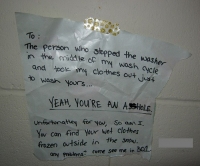 To :
The person who stopped the washer
in the middle of my wash cycle
and took my clothes out just
to wash yours...
YEAH, YOU'RE AN A HOLE
unfortunately for you, so am I.
You can find your wet clothes
frozen outside in the snow.
any problems - come see me in 302